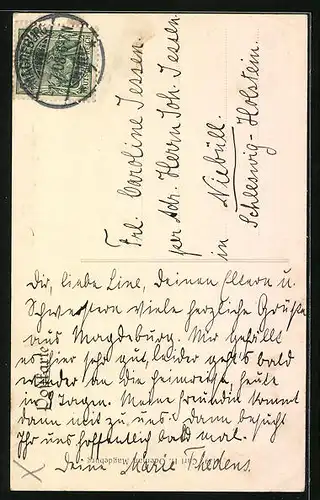 MAGDEBURG
Frl. Caroline Jessen
per Adr. Herrn Joh. Jessen
in Niebüll.
Schleswig-Holstein.
Postkarte
Dir, liebe Line, deinen Eltern u.
Schwestern viele herzliche Grüße
aus Magdeburg. Mir gefällt
es hier sehr gut, leider geht's bald
wieder an die Heimreise, heute
in 8 Tagen. Meine Freundin kommt
dann mit zu uns. Dann besucht
Ihr uns hoffentlich bald mal.
Deine Marie Thedens
Magdeburg